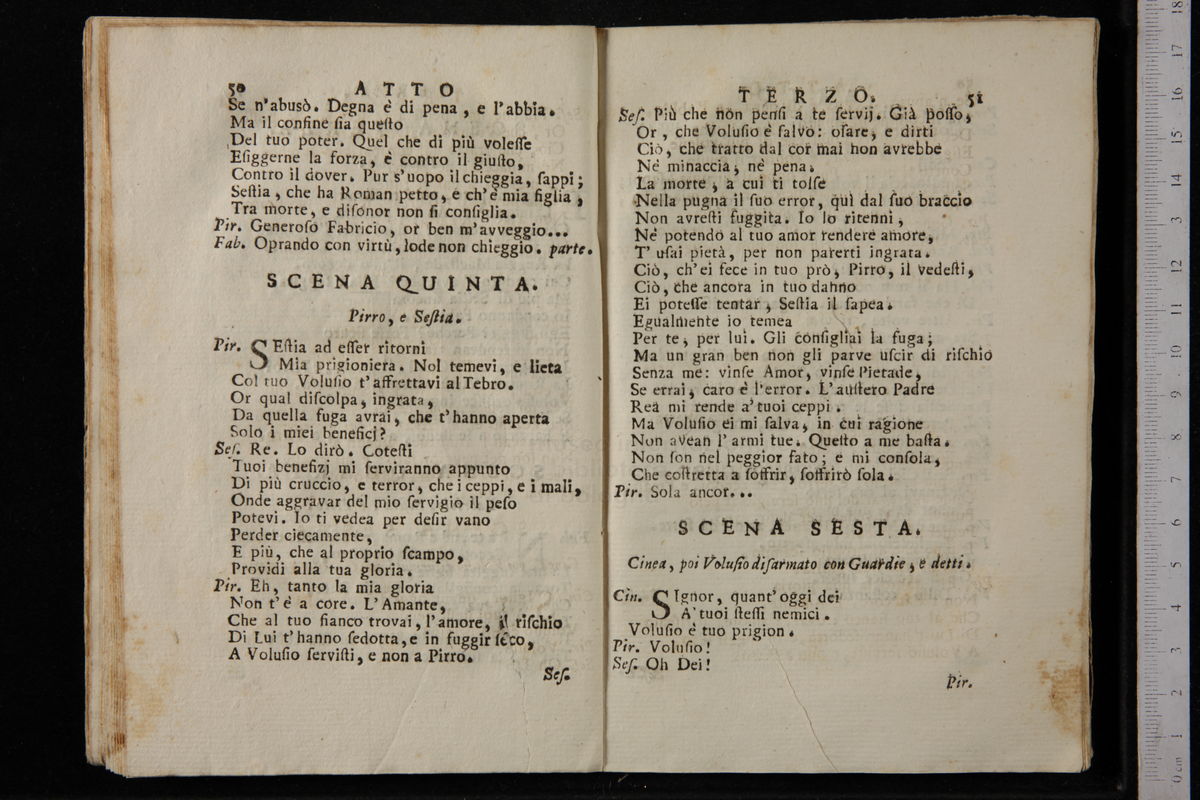 50 ATTO
Se n'abusò. Degna è di pena, e l'abbia.
Ma il confine ſia queſto
Del tuo poter. Quel che di più voleſſe
Eſiggerne la forza, è contro il giuſto,
Contro il dover. Pur s'uopo il chieggia, ſappi;
Seſtia, che ha Roman petto, e ch'è mia figlia,
Tra morte, e diſonor non ſi conſiglia.
Pir. Generoſo Fabricio, or ben m'avveggio...
Fab. Oprando con virtù, lode non chieggio. parte.
SCENA QUINTA.
Pirro, e Seſtia.
Pir. SEſtia ad eſſer ritorni
Mia prigioniera. Nol temevi, e lieta
Col tuo Voluſio t'affrettavi al Tebro.
Or qual diſcolpa, ingrata,
Da quella fuga avrai, che t'hanno aperta
Solo i miei beneficj?
Seſ. Re. Lo dirò. Coteſti
Tuoi benefizj mi ſerviranno appunto
Di più cruccio, e terror, che i ceppi, e i mali,
Onde aggravar del mio ſervigio il peſo
Potevi. Io ti vedea per deſir vano
Perder ciecamente,
E più, che al proprio ſcampo,
Providi alla tua gloria.
Pir. Eh, tanto la mia gloria
Non t'è a core. L'Amante,
Che al tuo fianco trovai, l'amore, il riſchio
Di Lui t'hanno ſedotta, e in fuggir ſeco,
A Voluſio ſerviſti, e non a Pirro.
Seſ.
TERZO. 51
Seſ. Più che non penſi a te ſervij. Già poſſo,
Or, che Voluſio è ſalvo: oſare, e dirti
Ciò, che tratto dal cor mai non avrebbe
Nè minaccia, nè pena.
La morte, a cui ti tolſe
Nella pugna il ſuo error, quì dal ſuo braccio
Non avreſti fuggita. Io lo ritenni,
Nè potendo al tuo amor rendere amore,
T' uſai pietà, per non parerti ingrata.
Ciò, ch'ei fece in tuo prò, Pirro, il vedeſti,
Ciò, che ancora in tuo danno
Ei poteſſe tentar, Seſtia il ſapea.
Egualmente io temea
Per te, per lui. Gli conſigliai la fuga;
Ma un gran ben non gli parve uſcir di riſchio
Senza me: vinſe Amor, vinſe Pietade,
Se errai, caro è l'error. L'auſtero Padre
Rea mi rende a' tuoi ceppi.
Ma Voluſio ei mi ſalva, in cui ragione
Non aVean l' armi tue. Queſto a me baſta.
Non ſon nel peggior fato; e mi conſola,
Che coſtretta a ſoffrir, ſoffrirò ſola.
Pir. Sola ancor...
SCENA SESTA.
Cinea, poi Voluſio diſarmato con Guardie, e detti.
Cin. SIgnor, quant'oggi dei
A' tuoi ſteſſi nemici.
Voluſio è tuo prigion.
Pir. Voluſio!
Seſ. Oh Dei!
Pir.